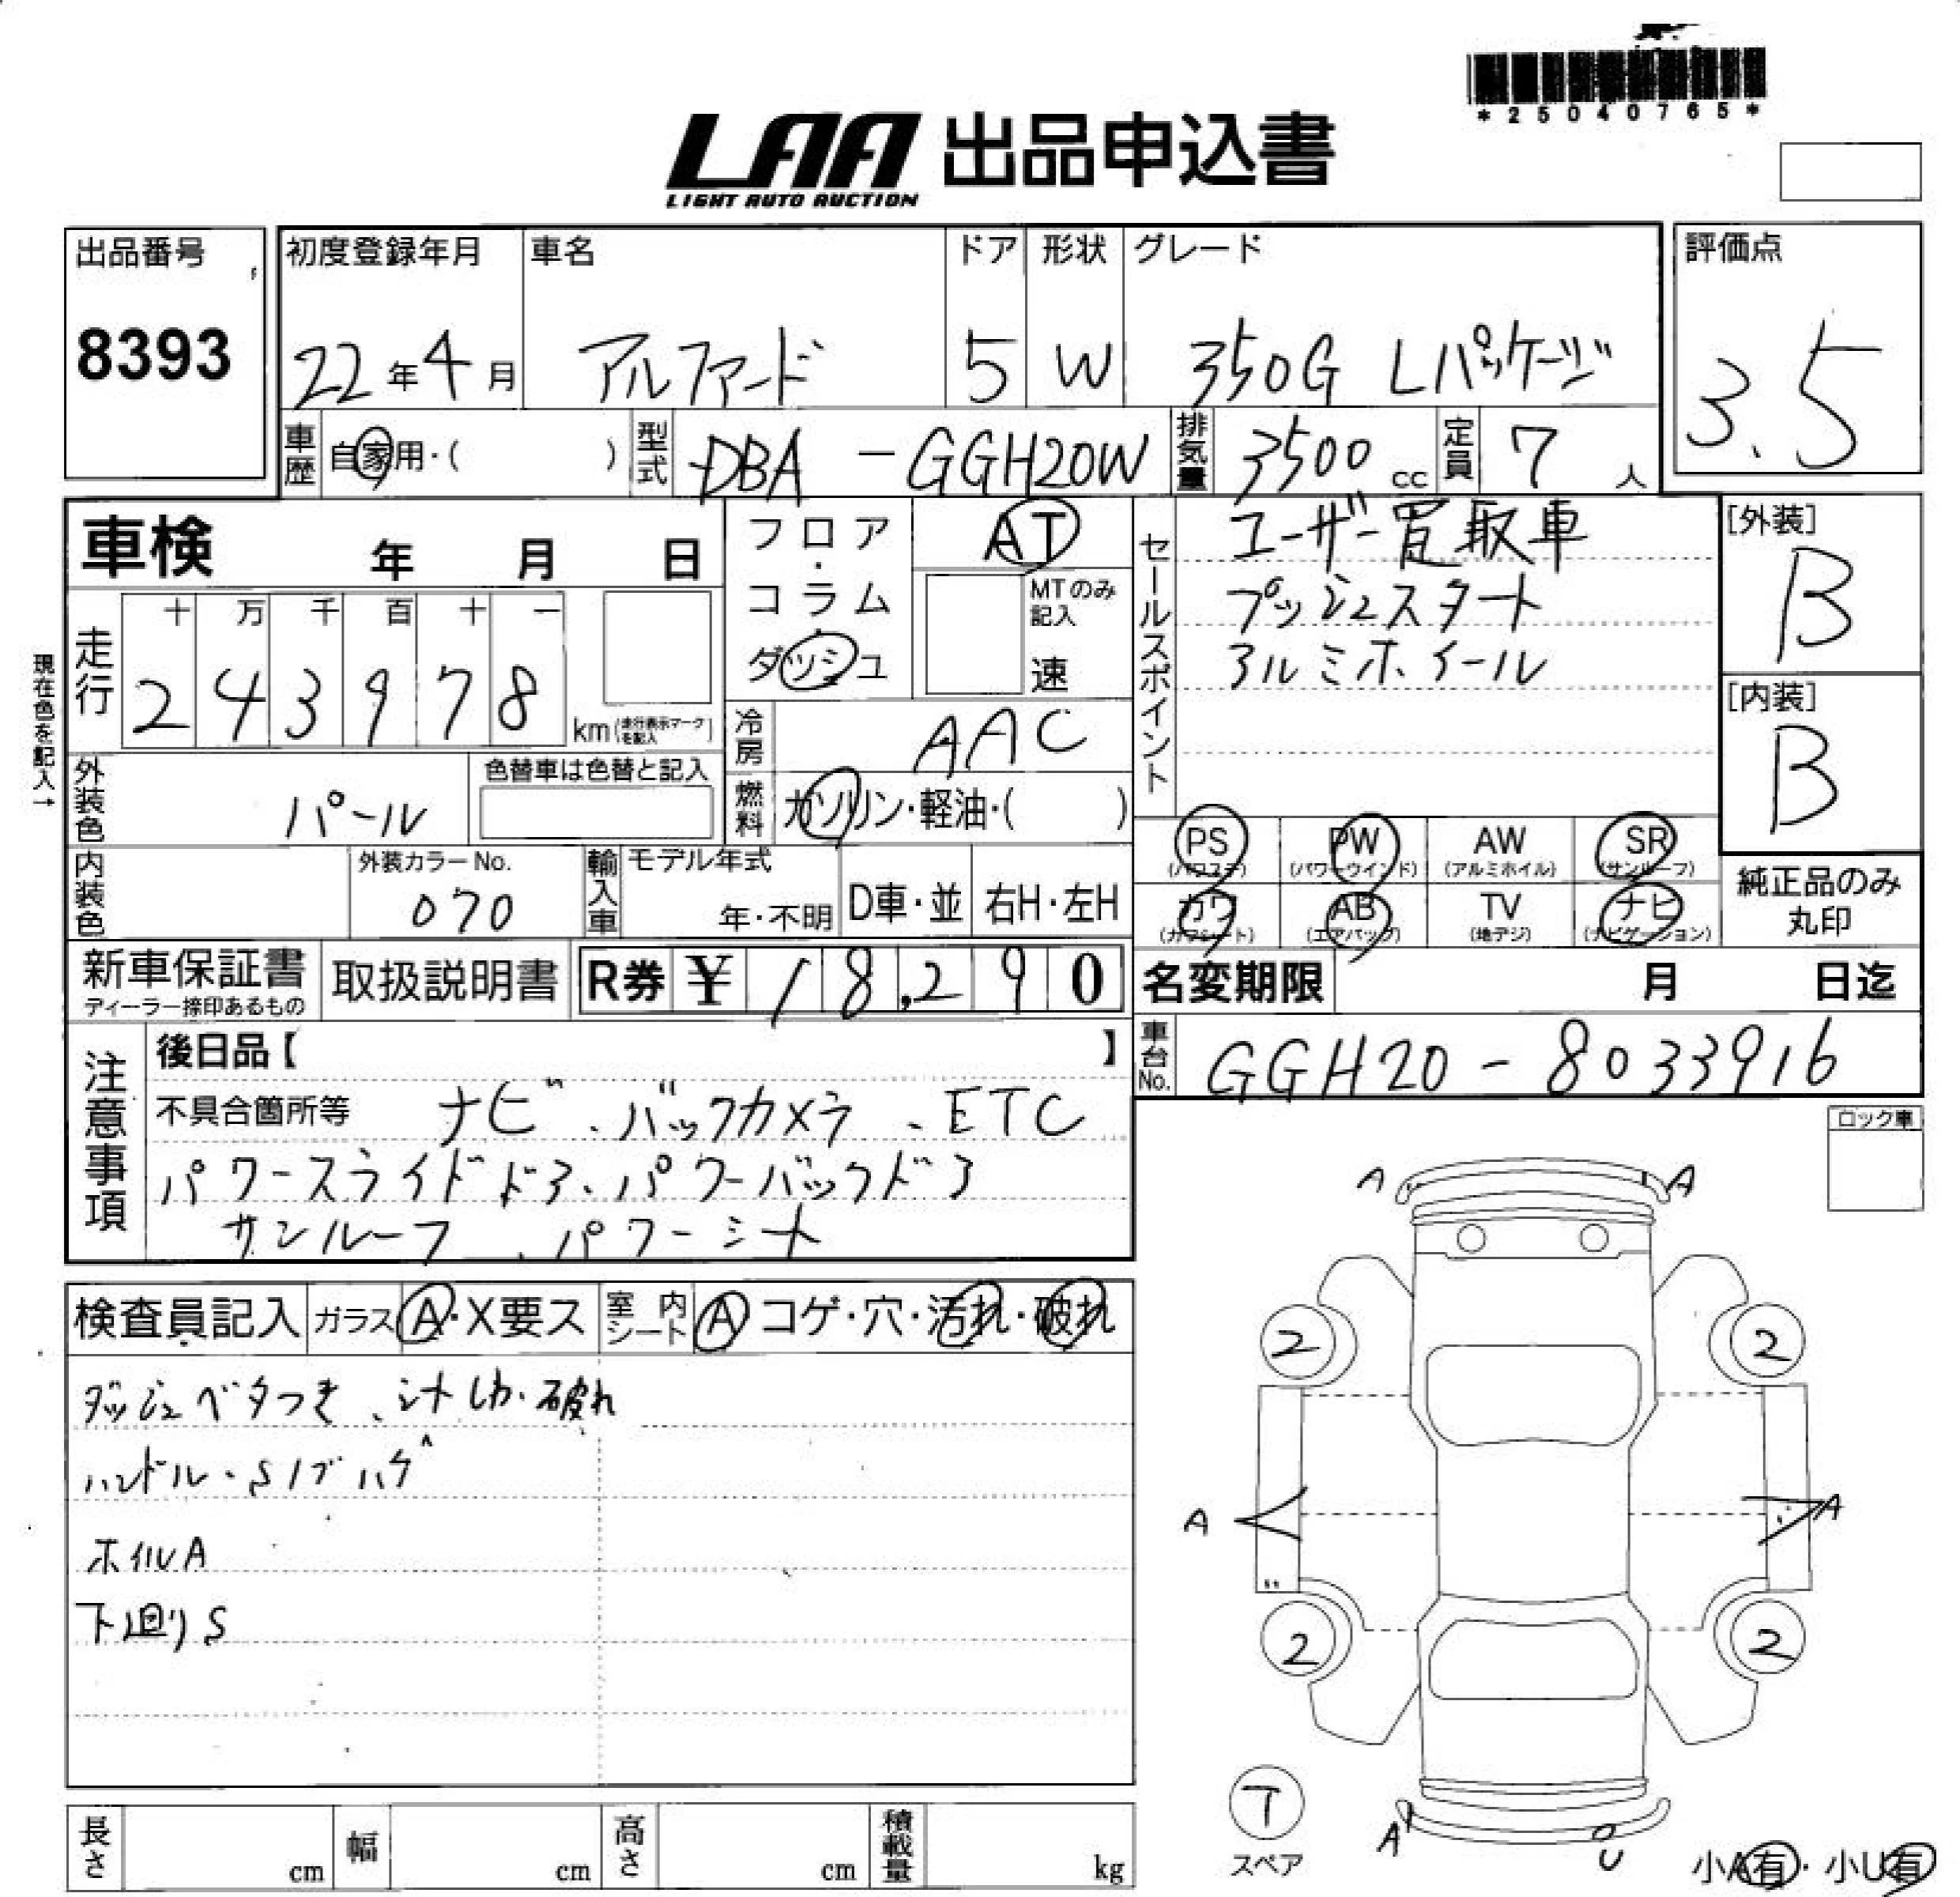 *25040765*
LAA 出品申込書
LIGHT AUTO AUCTION
出品番号
8393
初度登録年月
22年4月
車名
アルファード
ドア
5
形状
W
グレード
350G Lパッケージ
評価点
3.5
車歴
自家用・( )
型式
DBA - GGH20W
排気量
3500 cc
定員
7 人
車検 年 月 日
フロア・コラム・ダッシュ
AT
MTのみ記入
速
セールスポイント
ユーザー買取車
プッシュスタート
アルミホイール
[外装]
B
[内装]
B
現在色を記入→
走行
十 万 千 百 十 一
2 4 3 9 7 8
km(走行表示マークを記入)
冷房
AAC
外装色
パール
色替車は色替と記入
燃料
ガソリン・軽油・( )
PS (パワステ)
PW (パワーウインド)
AW (アルミホイル)
SR (サンルーフ)
カワ (カワシート)
AB (エアバッグ)
TV (地デジ)
ナビ (ナビゲーション)
純正品のみ
丸印
内装色
外装カラーNo.
070
輸入車
モデル年式
年・不明
D車・並
右H・左H
新車保証書
ディーラー捺印あるもの
取扱説明書
R券 ¥ 18,290
名変期限 月 日迄
車台No.
GGH20 - 8033916
注意事項
後日品【 】
不具合箇所等 ナビ、バックカメラ、ETC
パワースライドドア、パワーバックドア
サンルーフ、パワーシート
ロック車
検査員記入
ガラス A・X要ス
室内シート A コゲ・穴・汚れ・破れ
ダッシュベタつき、シートしわ・破れ
ハンドル・Sノブハゲ
ホイルA
下廻りS
A A
2 2
A A
2 2
T
スペア
A U
小A有・小U有
長さ cm
幅 cm
高さ cm
積載量 kg